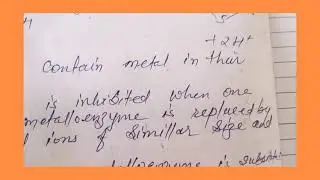 + 2H+
contain metal in their
is inhibited when one
metalloenzyme is replaced by
ions of similler size and
is